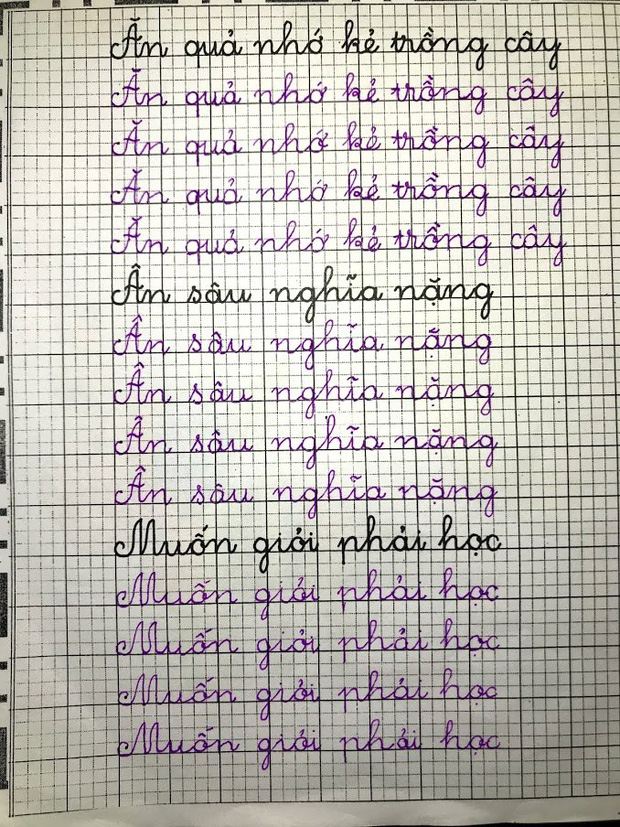 Ăn quả nhớ kẻ trồng cây
Ăn quả nhớ kẻ trồng cây
Ăn quả nhớ kẻ trồng cây
Ăn quả nhớ kẻ trồng cây
Ăn quả nhớ kẻ trồng cây
Ân sâu nghĩa nặng
Ân sâu nghĩa nặng
Ân sâu nghĩa nặng
Ân sâu nghĩa nặng
Ân sâu nghĩa nặng
Muốn giỏi phải học
Muốn giỏi phải học
Muốn giỏi phải học
Muốn giỏi phải học
Muốn giỏi phải học